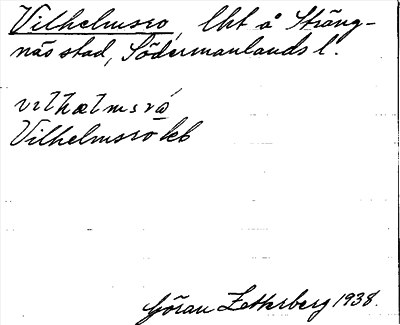 Vilhelmsro, lht å Sträng-
näs stad, Södermanlands l.
vɩlhælmsrό
Vilhelmsro kb
Göran Zetterberg 1938.